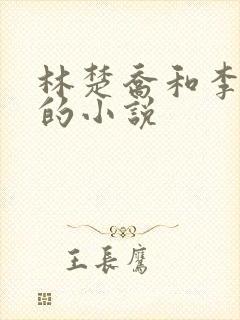 林楚乔和李
的小说
王長鷹